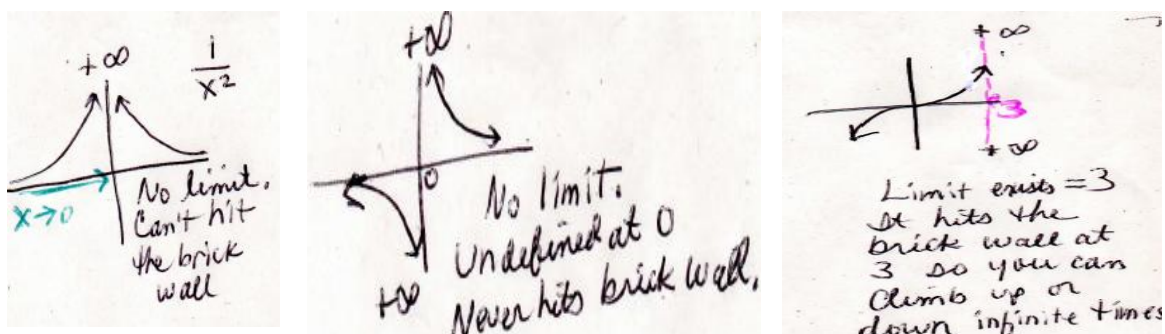 +∞
1
x²
x→0
No limit.
Can't hit
the brick
wall
+∞
0
No limit.
Undefined at 0
Never hits brick wall.
+∞
+ ∞
3
+ ∞
Limit exists = 3
It hits the
brick wall at
3 so you can
climb up or
down infinite times